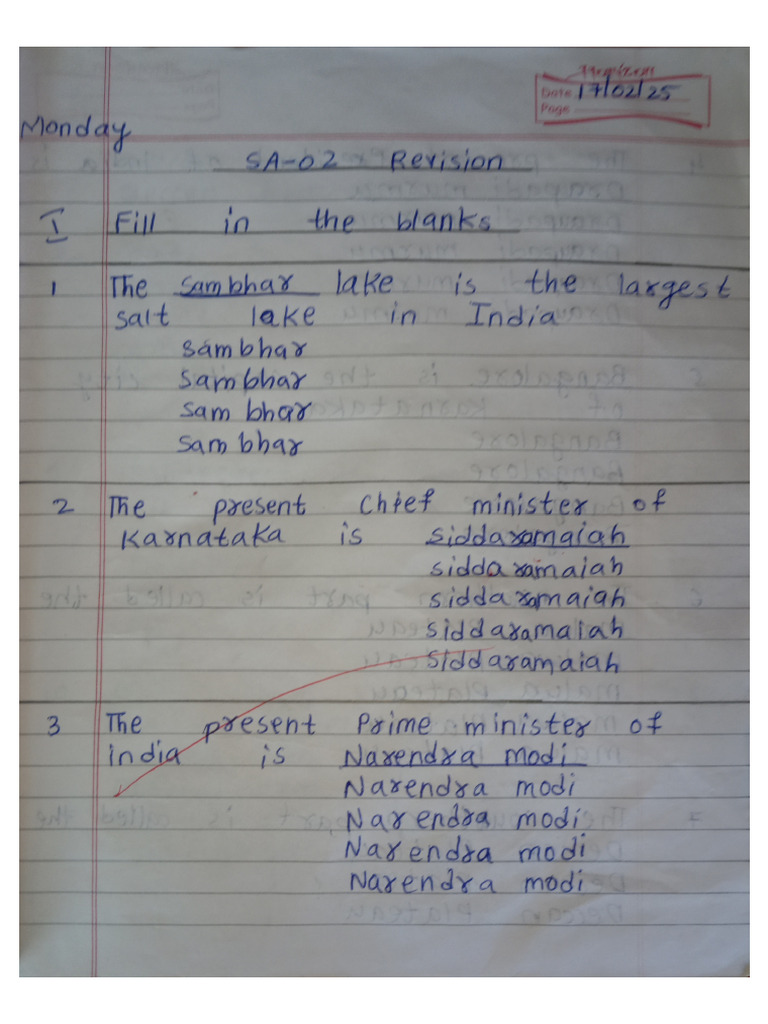 Date 17/02/25
Page
Monday
SA-02 Revision
I Fill in the blanks
1 The Sambhar lake is the largest
salt lake in India
Sambhar
Sambhar
Sambhar
Sambhar
2 The present Chief minister of
Karnataka is Siddaramaiah
Siddaramaiah
Siddaramaiah
Siddaramaiah
Siddaramaiah
3 The present Prime minister of
india is Narendra modi
Narendra modi
Narendra modi
Narendra modi
Narendra modi